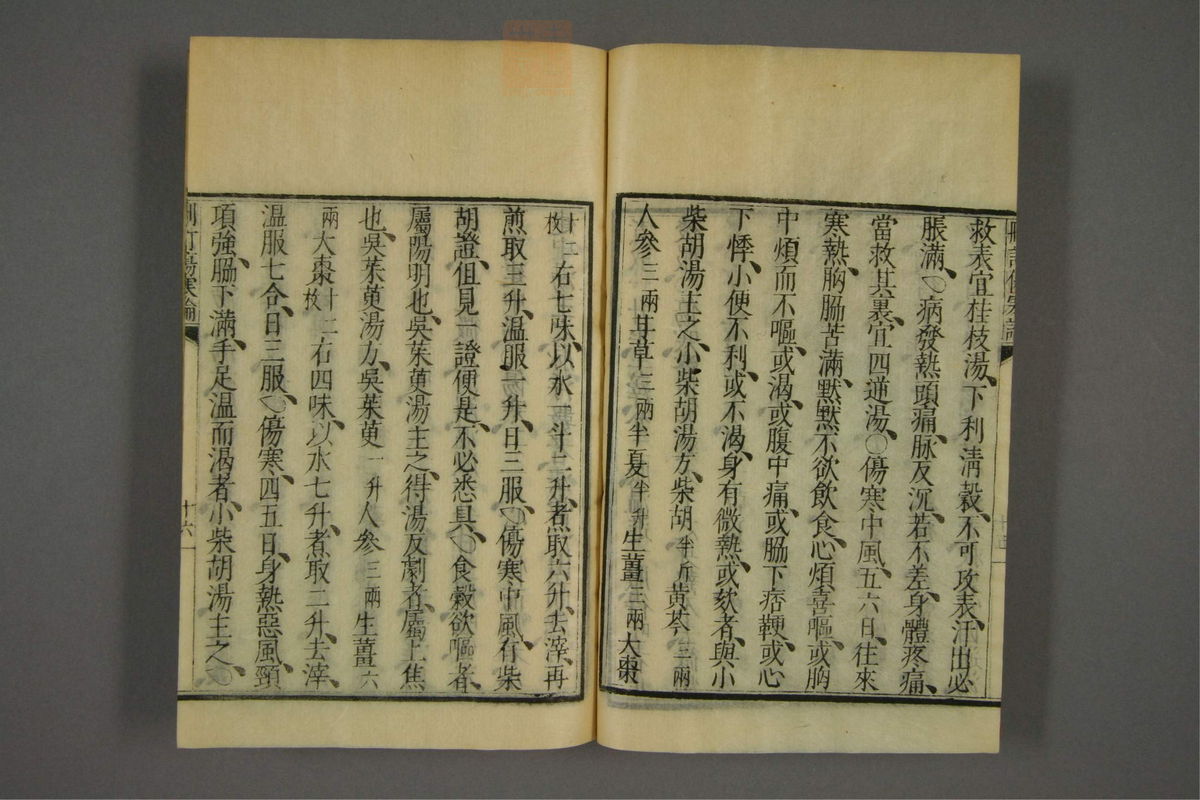 救表宜桂枝湯、下利清穀、不可攻表、汗出必
脹滿、〇病發熱頭痛、脉反沉、若不差、身體疼痛、
當救其裏、宜四逆湯、〇傷寒中風、五六日、往來
寒熱、胸脇苦滿、默默不欲飲食、心煩喜嘔、或胸
中煩而不嘔、或渴、或腹中痛、或脇下痞鞕、或心
下悸、小便不利、或不渴、身有微熱、或欬者、與小
柴胡湯主之、小柴胡湯方、柴胡半斤黃芩三兩
人參三兩甘草三兩半夏半升生薑三兩大棗
十二枚右七味、以水一斗二升、煮取六升、去滓、再
煎取三升、温服一升、日三服、〇傷寒中風、有柴
胡證、但見一證便是、不必悉具、〇食穀欲嘔者、
屬陽明也、吳茱萸湯主之、得湯反劇者、屬上焦
也、吳茱萸湯方、吳茱萸一升人參三兩生薑六
兩大棗十二枚右四味、以水七升、煮取二升、去滓、
温服七合、日三服、〇傷寒四五日、身熱惡風、頸
項強、脇下滿、手足温而渴者、小柴胡湯主之、〇
刪訂傷寒論
十六